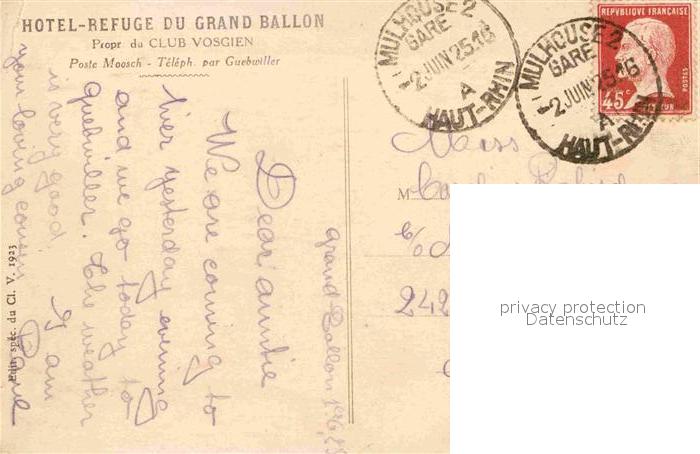 HOTEL-REFUGE DU GRAND BALLON
Propr. du CLUB VOSGIEN
Poste Moosch - Téléph. par Guebwiller
Grand Ballon 1/6/25
Dear auntie
We are coming to
hier yesterday evening
and we go today to
Quebwiller. The weather
is very good. I am
your loving cousin
Edit. spéc. du Cl. V. 1923
MULHOUSE 2
GARE
2 JUIN 25
A
HAUT-RHIN
MULHOUSE 2
GARE
2 JUIN 25
A
HAUT-RHIN
REPUBLIQUE FRANÇAISE
45c
POSTES
PASTEUR
Miss
M
c/o
242
privacy protection
Datenschutz